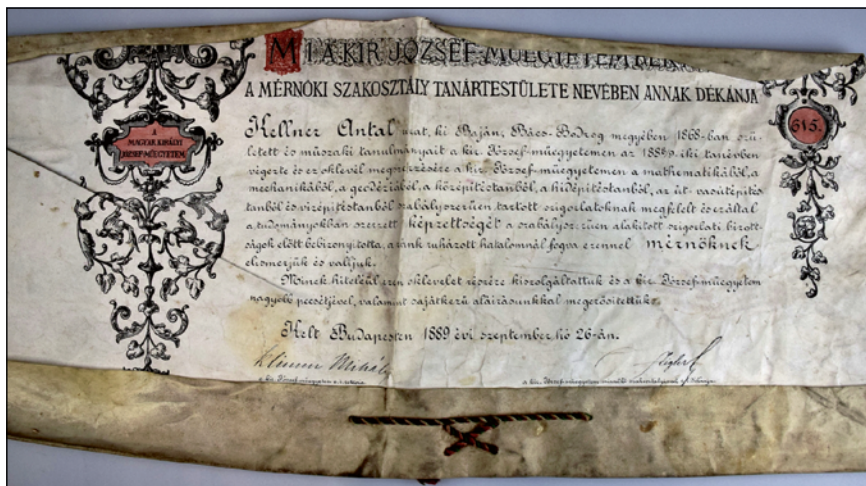 MI A KIR JÓZSEF-MŰEGYETEM
A MÉRNÖKI SZAKOSZTÁLY TANÁRTESTÜLETE NEVÉBEN ANNAK DÉKÁNJA
A
MAGYAR KIRÁLYI
JÓZSEF-MŰEGYETEM
615.
Kellner Antal urat, ki Baján, Bács-Bodrog megyében 1868-ban szü-
letett és műszaki tanulmányait a kir. József-műegyetemen az iki tanévben
végezte és ez oklevél megnyerésére a kir. József-műegyetemen a mathematikából, a
mechanikából, a geodéziából, a középítéstanból, a hídépítéstanból, az út- vasútépítés
tanból és vízépítéstanból szabályszerűen tartott szigorlatoknak megfelelt és ezáltal
a tudományokban szerzett képzettségét a szabályszerűen alakított szigorlati bizott-
ságok előtt bebizonyította, a ránk ruházott hatalomnál fogva ezennel mérnöknek
elismerjük és valljuk.
Minek hiteléül ezen oklevelet részére kiszolgáltattuk és a kir. József-műegyetem
nagyobb pecsétjével, valamint sajátkezű aláírásunkkal megerősítettük.
Kelt Budapesten 1889 évi szeptember hó 26-án.
Klimm Mihály
a kir. József-műegyetem e. i. rektora
a kir. József-műegyetem